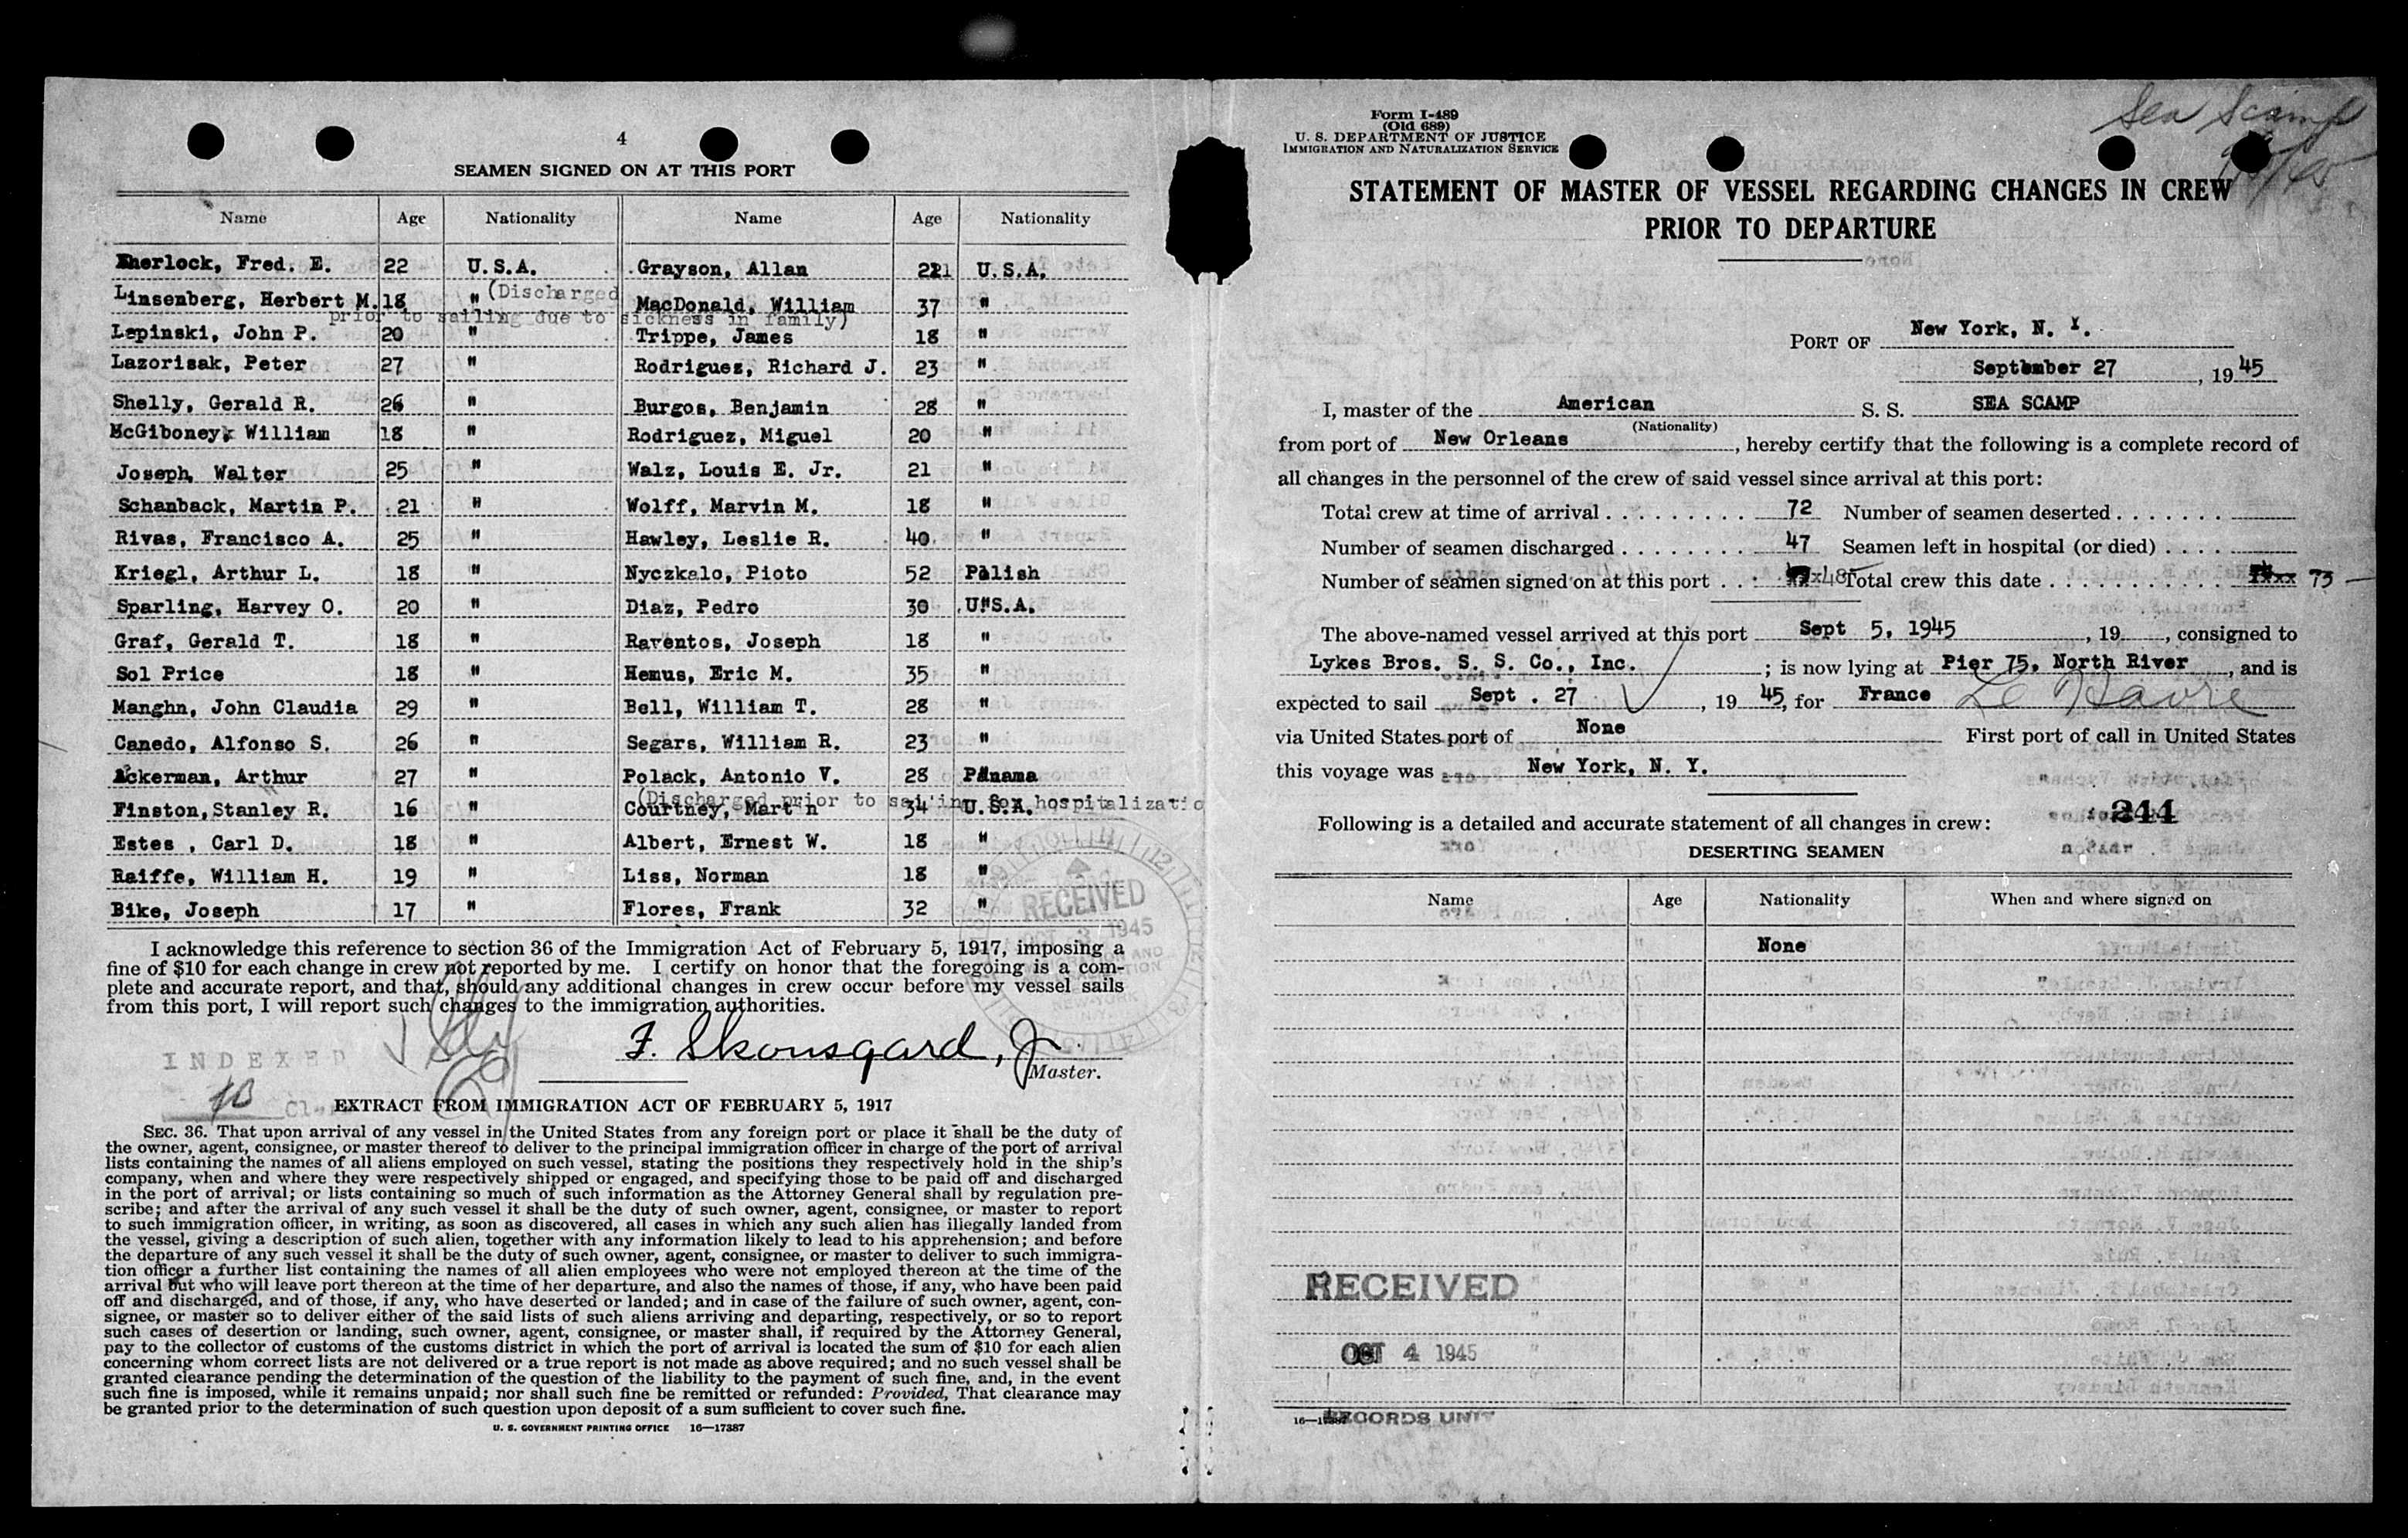 4
SEAMEN SIGNED ON AT THIS PORT
Name Age Nationality Name Age Nationality
herlock, Fred. E. 22 U.S.A. Grayson, Allan 21 U.S.A.
Linsenberg, Herbert M. 18 " (Discharged MacDonald, William 37 "
prior to sailing due to sickness in family)
Lapinski, John P. 20 " Trippe, James 18 "
Lazorisak, Peter 27 " Rodriguez, Richard J. 23 "
Shelly, Gerald R. 26 " Burgos, Benjamin 28 "
McGiboney, William 18 " Rodriguez, Miguel 20 "
Joseph, Walter 25 " Walz, Louis E. Jr. 21 "
Schanback, Martin P. 21 " Wolff, Marvin M. 18 "
Rivas, Francisco A. 25 " Hawley, Leslie R. 40 "
Kriegl, Arthur L. 18 " Nyczkalo, Pioto 52 Polish
Sparling, Harvey O. 20 " Diaz, Pedro 30 U.S.A.
Graf, Gerald T. 18 " Raventos, Joseph 18 "
Sol Price 18 " Hemus, Eric M. 35 "
Manghn, John Claudia 29 " Bell, William T. 28 "
Canedo, Alfonso S. 26 " Segars, William R. 23 "
Ackerman, Arthur 27 " Polack, Antonio V. 28 Panama
(Discharged prior to sailing for hospitalizatio
Finston, Stanley R. 16 " Courtney, Martin 34 U.S.A.
Estes , Carl D. 18 " Albert, Ernest W. 18 "
Raiffe, William H. 19 " Liss, Norman 18 "
Bike, Joseph 17 " Flores, Frank 32 "
I acknowledge this reference to section 36 of the Immigration Act of February 5, 1917, imposing a
fine of $10 for each change in crew not reported by me. I certify on honor that the foregoing is a com-
plete and accurate report, and that, should any additional changes in crew occur before my vessel sails
from this port, I will report such changes to the immigration authorities.
RECEIVED
OCT 3 1945
NEW YORK
N.Y.
F. Skonsgard, Jr.
Master.
INDEXED
EXTRACT FROM IMMIGRATION ACT OF FEBRUARY 5, 1917
SEC. 36. That upon arrival of any vessel in the United States from any foreign port or place it shall be the duty of
the owner, agent, consignee, or master thereof to deliver to the principal immigration officer in charge of the port of arrival
lists containing the names of all aliens employed on such vessel, stating the positions they respectively hold in the ship's
company, when and where they were respectively shipped or engaged, and specifying those to be paid off and discharged
in the port of arrival; or lists containing so much of such information as the Attorney General shall by regulation pre-
scribe; and after the arrival of any such vessel it shall be the duty of such owner, agent, consignee, or master to report
to such immigration officer, in writing, as soon as discovered, all cases in which any such alien has illegally landed from
the vessel, giving a description of such alien, together with any information likely to lead to his apprehension; and before
the departure of any such vessel it shall be the duty of such owner, agent, consignee, or master to deliver to such immigra-
tion officer a further list containing the names of all alien employees who were not employed thereon at the time of the
arrival but who will leave port thereon at the time of her departure, and also the names of those, if any, who have been paid
off and discharged, and of those, if any, who have deserted or landed; and in case of the failure of such owner, agent, con-
signee, or master so to deliver either of the said lists of such aliens arriving and departing, respectively, or so to report
such cases of desertion or landing, such owner, agent, consignee, or master shall, if required by the Attorney General,
pay to the collector of customs of the customs district in which the port of arrival is located the sum of $10 for each alien
concerning whom correct lists are not delivered or a true report is not made as above required; and no such vessel shall be
granted clearance pending the determination of the question of the liability to the payment of such fine, and, in the event
such fine is imposed, while it remains unpaid; nor shall such fine be remitted or refunded: Provided, That clearance may
be granted prior to the determination of such question upon deposit of a sum sufficient to cover such fine.
U. S. GOVERNMENT PRINTING OFFICE 16—17387
Sea Scamp
Form I-489
(Old 689)
U. S. DEPARTMENT OF JUSTICE
IMMIGRATION AND NATURALIZATION SERVICE
STATEMENT OF MASTER OF VESSEL REGARDING CHANGES IN CREW
PRIOR TO DEPARTURE
PORT OF New York, N. Y.
September 27, 1945
I, master of the American S. S. SEA SCAMP
(Nationality)
from port of New Orleans, hereby certify that the following is a complete record of
all changes in the personnel of the crew of said vessel since arrival at this port:
Total crew at time of arrival . . . . . . . . . 72 Number of seamen deserted . . . . . . .
Number of seamen discharged . . . . . . . . 47 Seamen left in hospital (or died) . . . .
Number of seamen signed on at this port . . . 48 Total crew this date . . . . . . . . . . . 73
The above-named vessel arrived at this port Sept 5, 1945, 19 , consigned to
Lykes Bros. S. S. Co., Inc. ; is now lying at Pier 75, North River, and is
expected to sail Sept . 27, 1945, for France Le Havre
via United States port of None First port of call in United States
this voyage was New York, N. Y.
244
Following is a detailed and accurate statement of all changes in crew:
DESERTING SEAMEN
Name Age Nationality When and where signed on
None
RECEIVED
OCT 4 1945
RECORDS UNIT